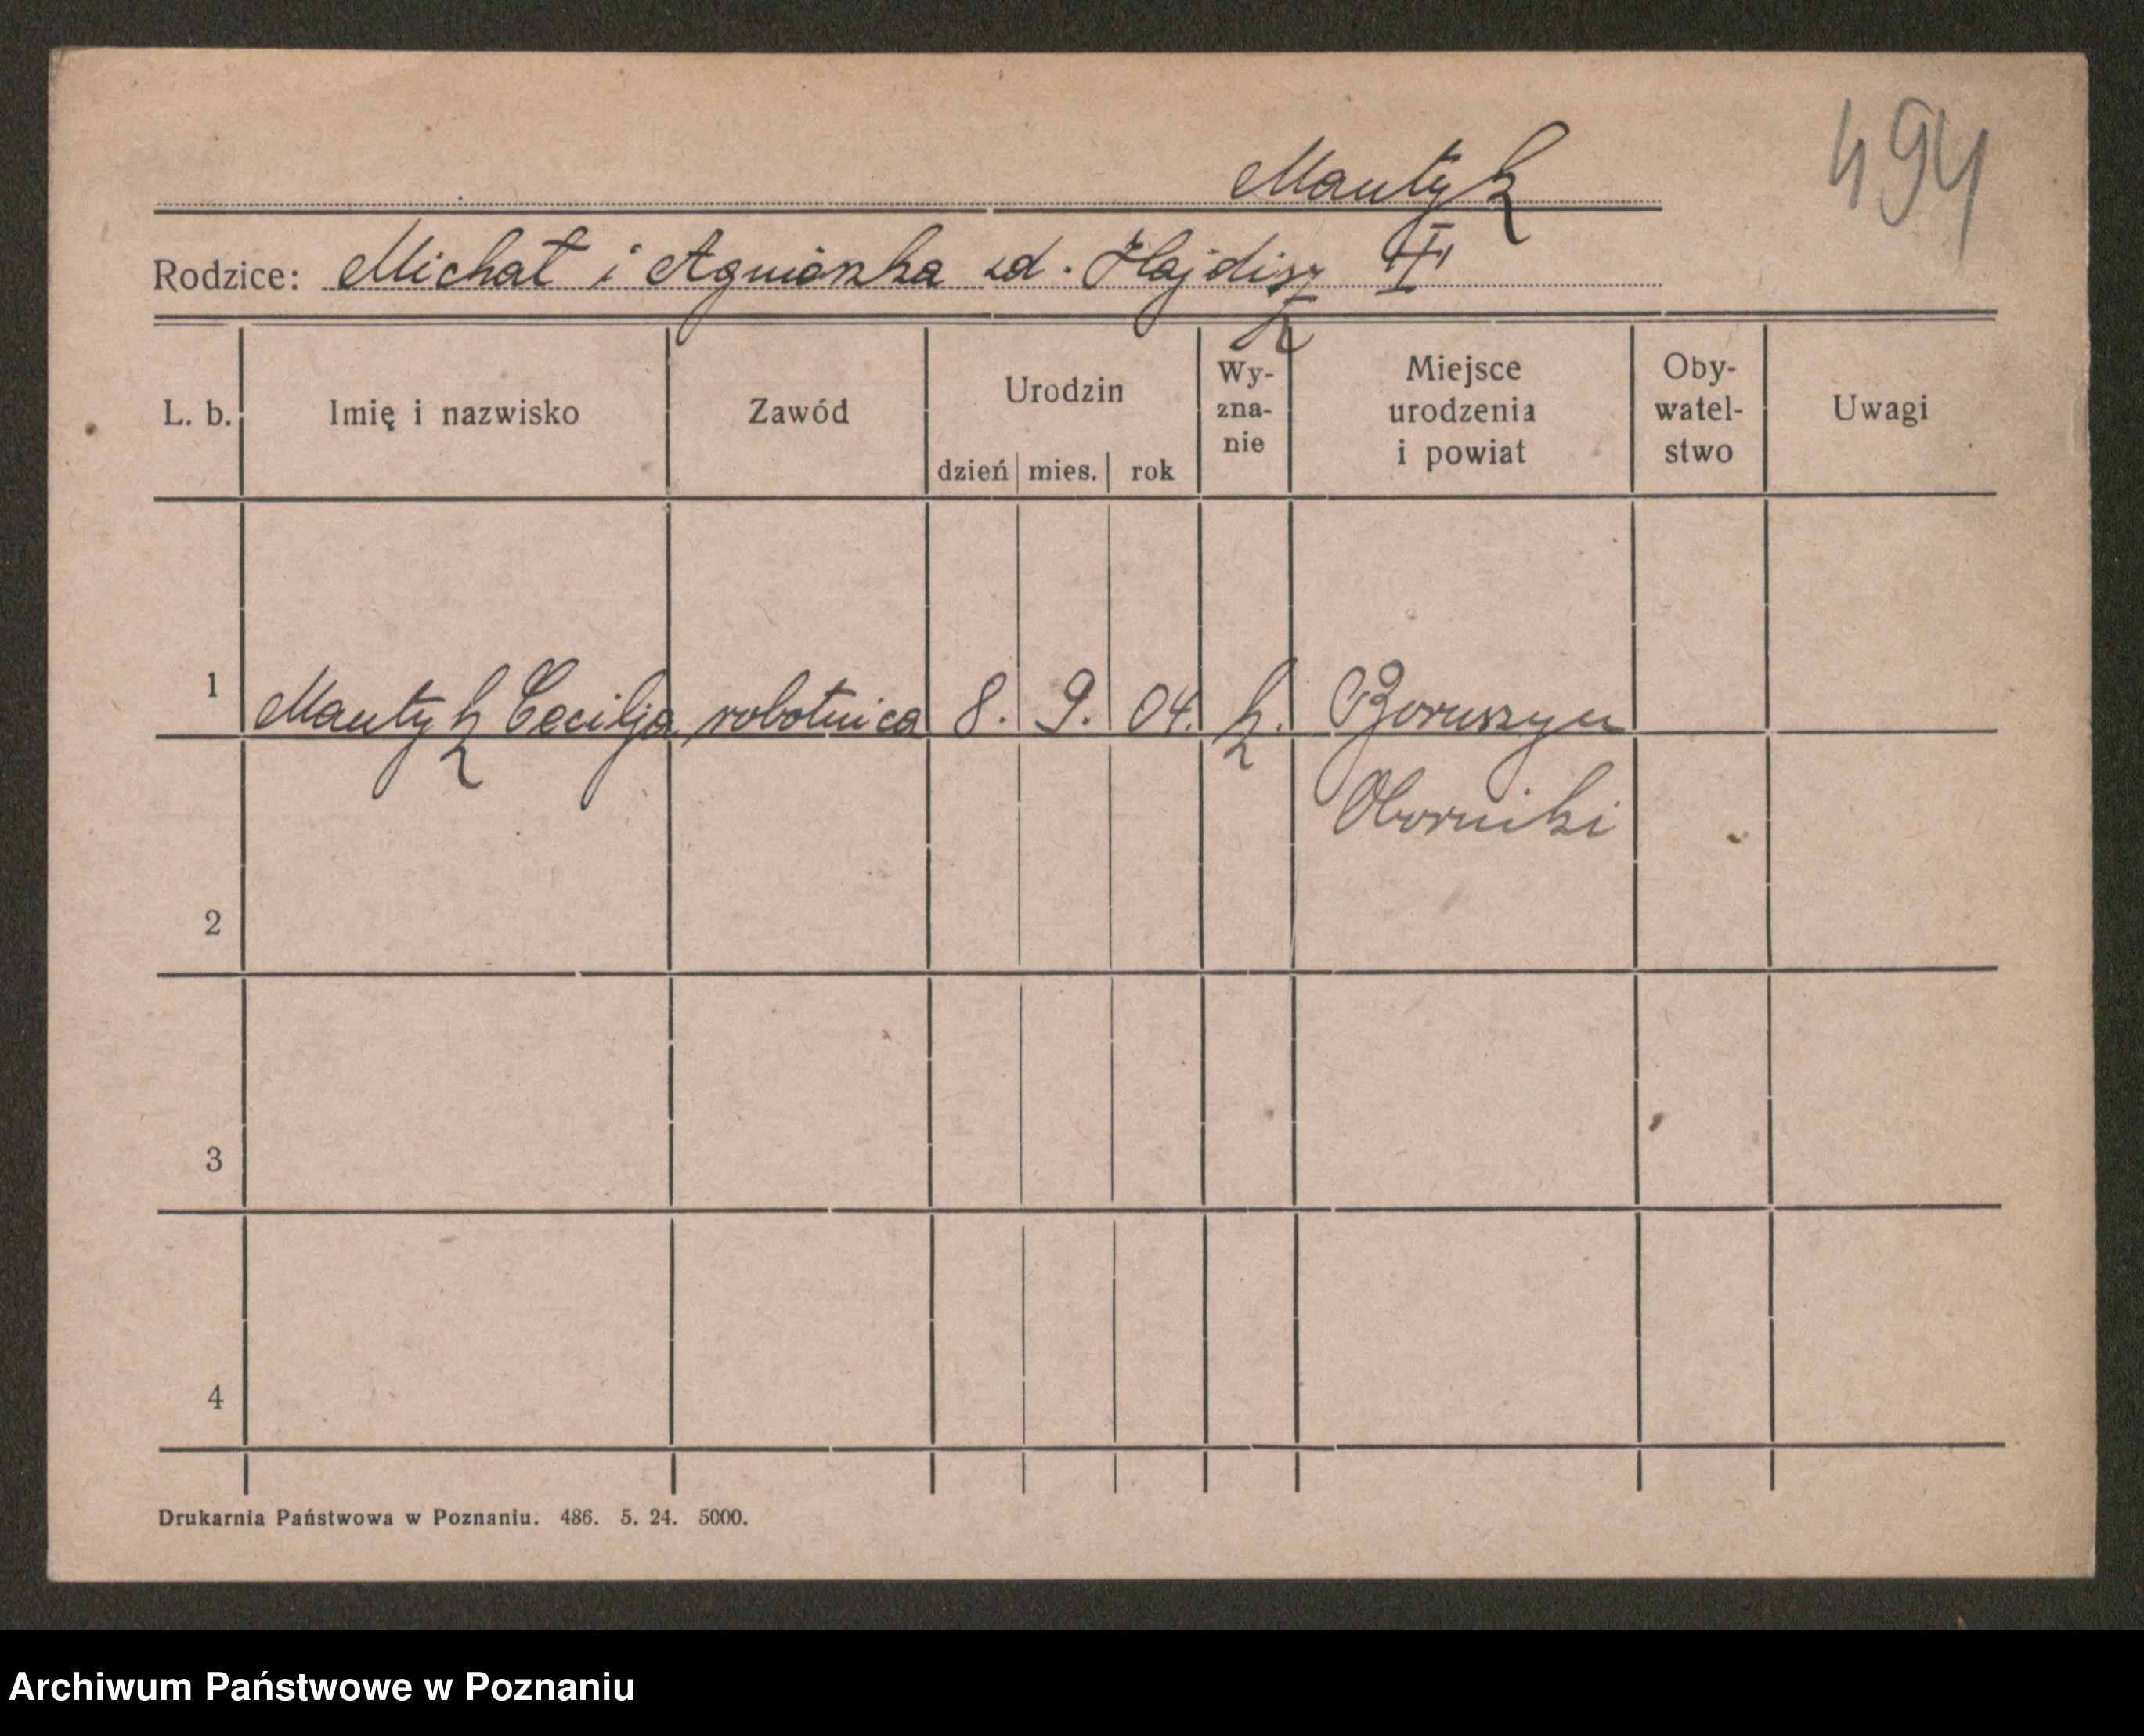 494
Mantyk
Rodzice: Michał i Agnieszka zd. Hajdisz II
k
L. b. Imię i nazwisko Zawód Urodzin dzień mies. rok Wy-zna-nie Miejsce urodzenia i powiat Oby-watel-stwo Uwagi
1 Mantyk Cecilja robotnica 8. 9. 04. k. Boruszyn
Oborniki
2
3
4
Drukarnia Państwowa w Poznaniu. 486. 5. 24. 5000.
Archiwum Państwowe w Poznaniu